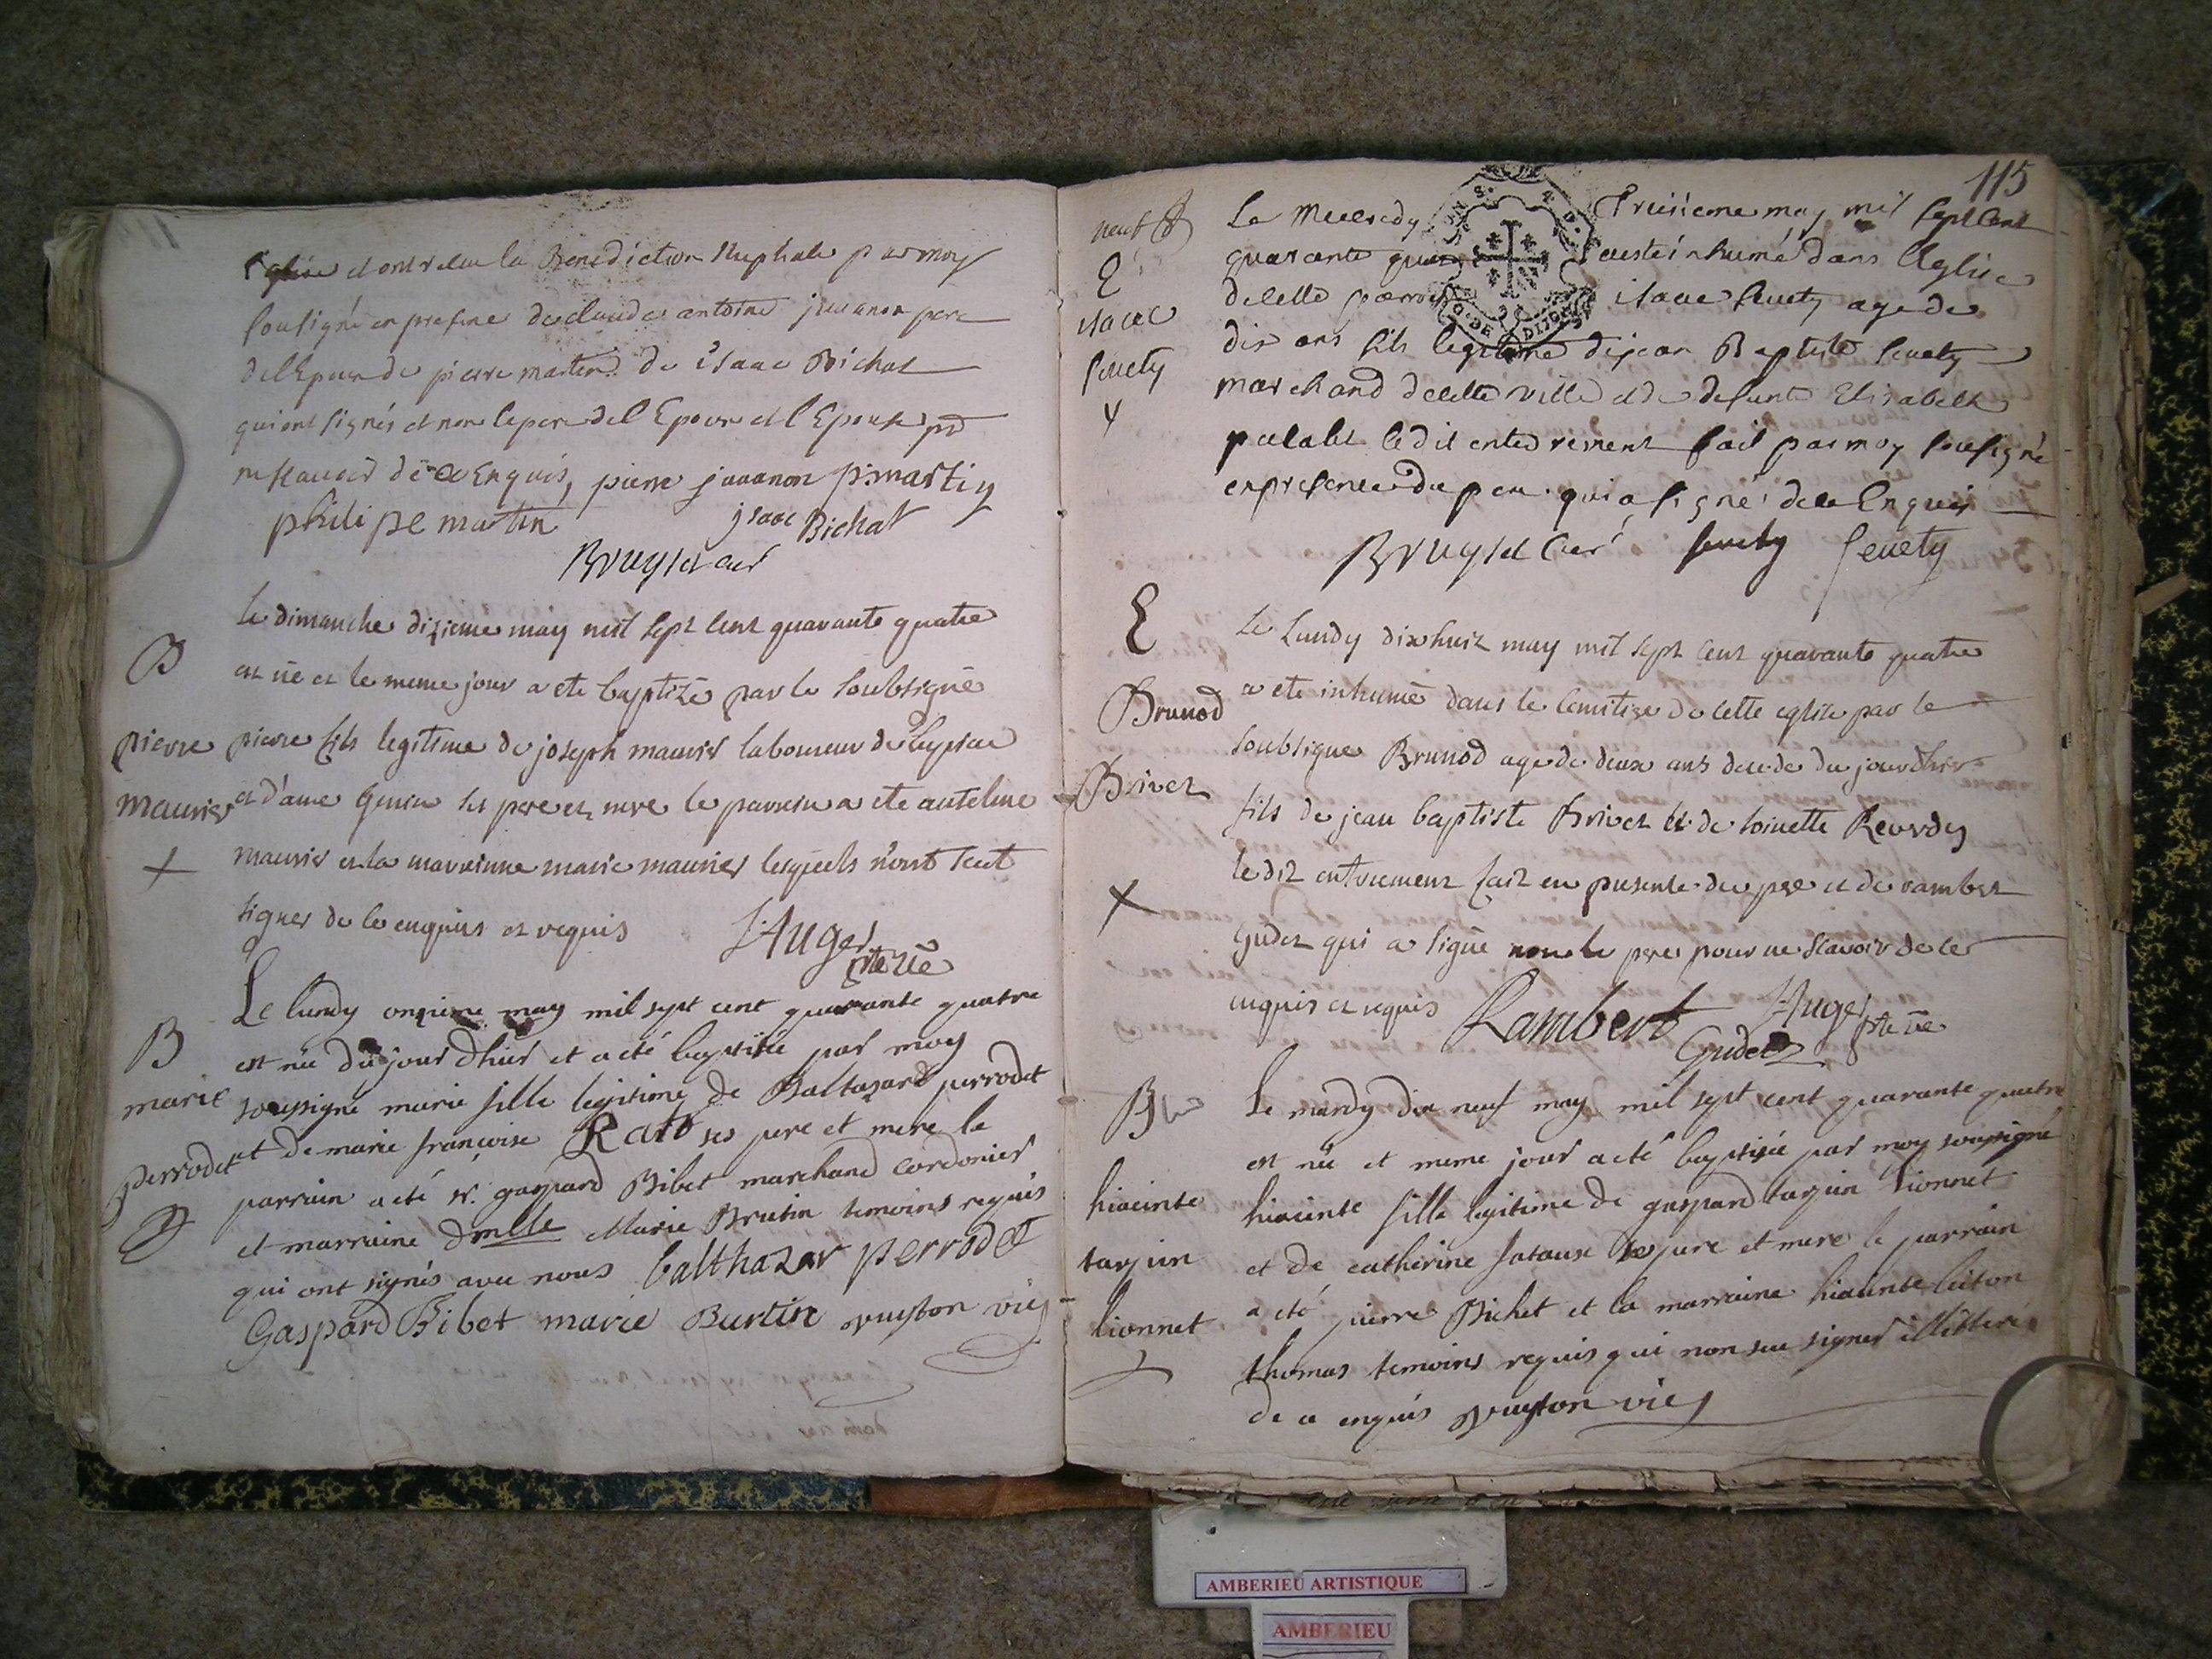 Eglise et ont recu la Benediction Nuptiale par moy
sousigné en presence de claude antoine juuanon pere
de l'Epoux de pierre martin de isaac Bichat
qui ont signés et non le pere de l'Epoux et l'Epouse pr
ne scauoir de ce Enquis, pierre juuanon p: martin
philipe martin isaac Bichat
Bruyset curé
B
pierre
maurier
le dimanche dizieme may mil sept cent quarante quatre
est né et le meme jour a ete baptizé par le soubsigné
pierre fils legitime de joseph maurier laboureur de
et d'anne ses pere et mere le parrein a ete antelme
maurier et la marreinne marie maurier lesquels n'ont sceut
signer de ce enquis et requis J: Auger
ptre vre
B
marie
perrodet
Le lundy onzieme may mil sept cent quarante quatre
est née du jour d'hier et a été baptisée par moy
soussigné marie fille legitime de Baltazard perrodet
et de marie francoise Rato ses pere et mere le
parrain a été sr. gaspard Bibet marchand cordonier
et marraine dmlle Marie Brutin temoins requis
qui ont signés avec nous balthazar perrodet
Gaspard Bibet marie Burtin vuyton vic
115
neuf
E
isaac
seuety
Le Mecredy Treisieme may mil sept cent
quarante a esté inhumé dans l'Eglise
de cette parroisse isaac seuety age de
dix ans fils legitime de jean Baptiste seuety
marchand de cette ville et de defunte Elisabeth
le dit enterrement fait par moy sousigné
en presence du pere qui a signé de ce Enquis
Bruyset curé seuety seuety
E
Brunod
Brivet
Le Lundy dixhuit may mil sept cent quarante quatre
a ete inhumé dans le cemitiere de cette eglise par le
soubsigné Brunod age de deux ans decedé du jour d'hier
fils de jean baptiste Brivet et de toinette Reverdy
le dit entrrement fait en presence du pere et de rambert
Gudet qui a signé non le pere pour ne scavoir de ce
enquis et requis Rambert Gudet J: Auger
ptre vre
B
hiacinte
tarjin
lionnet
Le mardy dix neuf may mil sept cent quarante quatre
est née et meme jour a été baptisée par moy soussigné
hiacinte fille legitime de gaspard tarjin lionnet
et de catherine ses pere et mere le parrain
a été pierre Bichet et la marraine hiacinte
thomas temoins requis qui non sceu signer illitteré
de ce enquis vuyton vic
AMBERIEU ARTISTIQUE
AMBERIEU